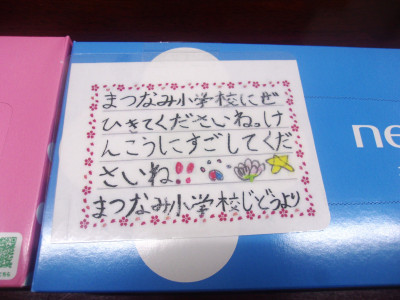 まつなみ小学校にぜ
ひきてくださいね。け
んこうにすごしてくだ
さいね!!
まつなみ小学校じどうより
ne